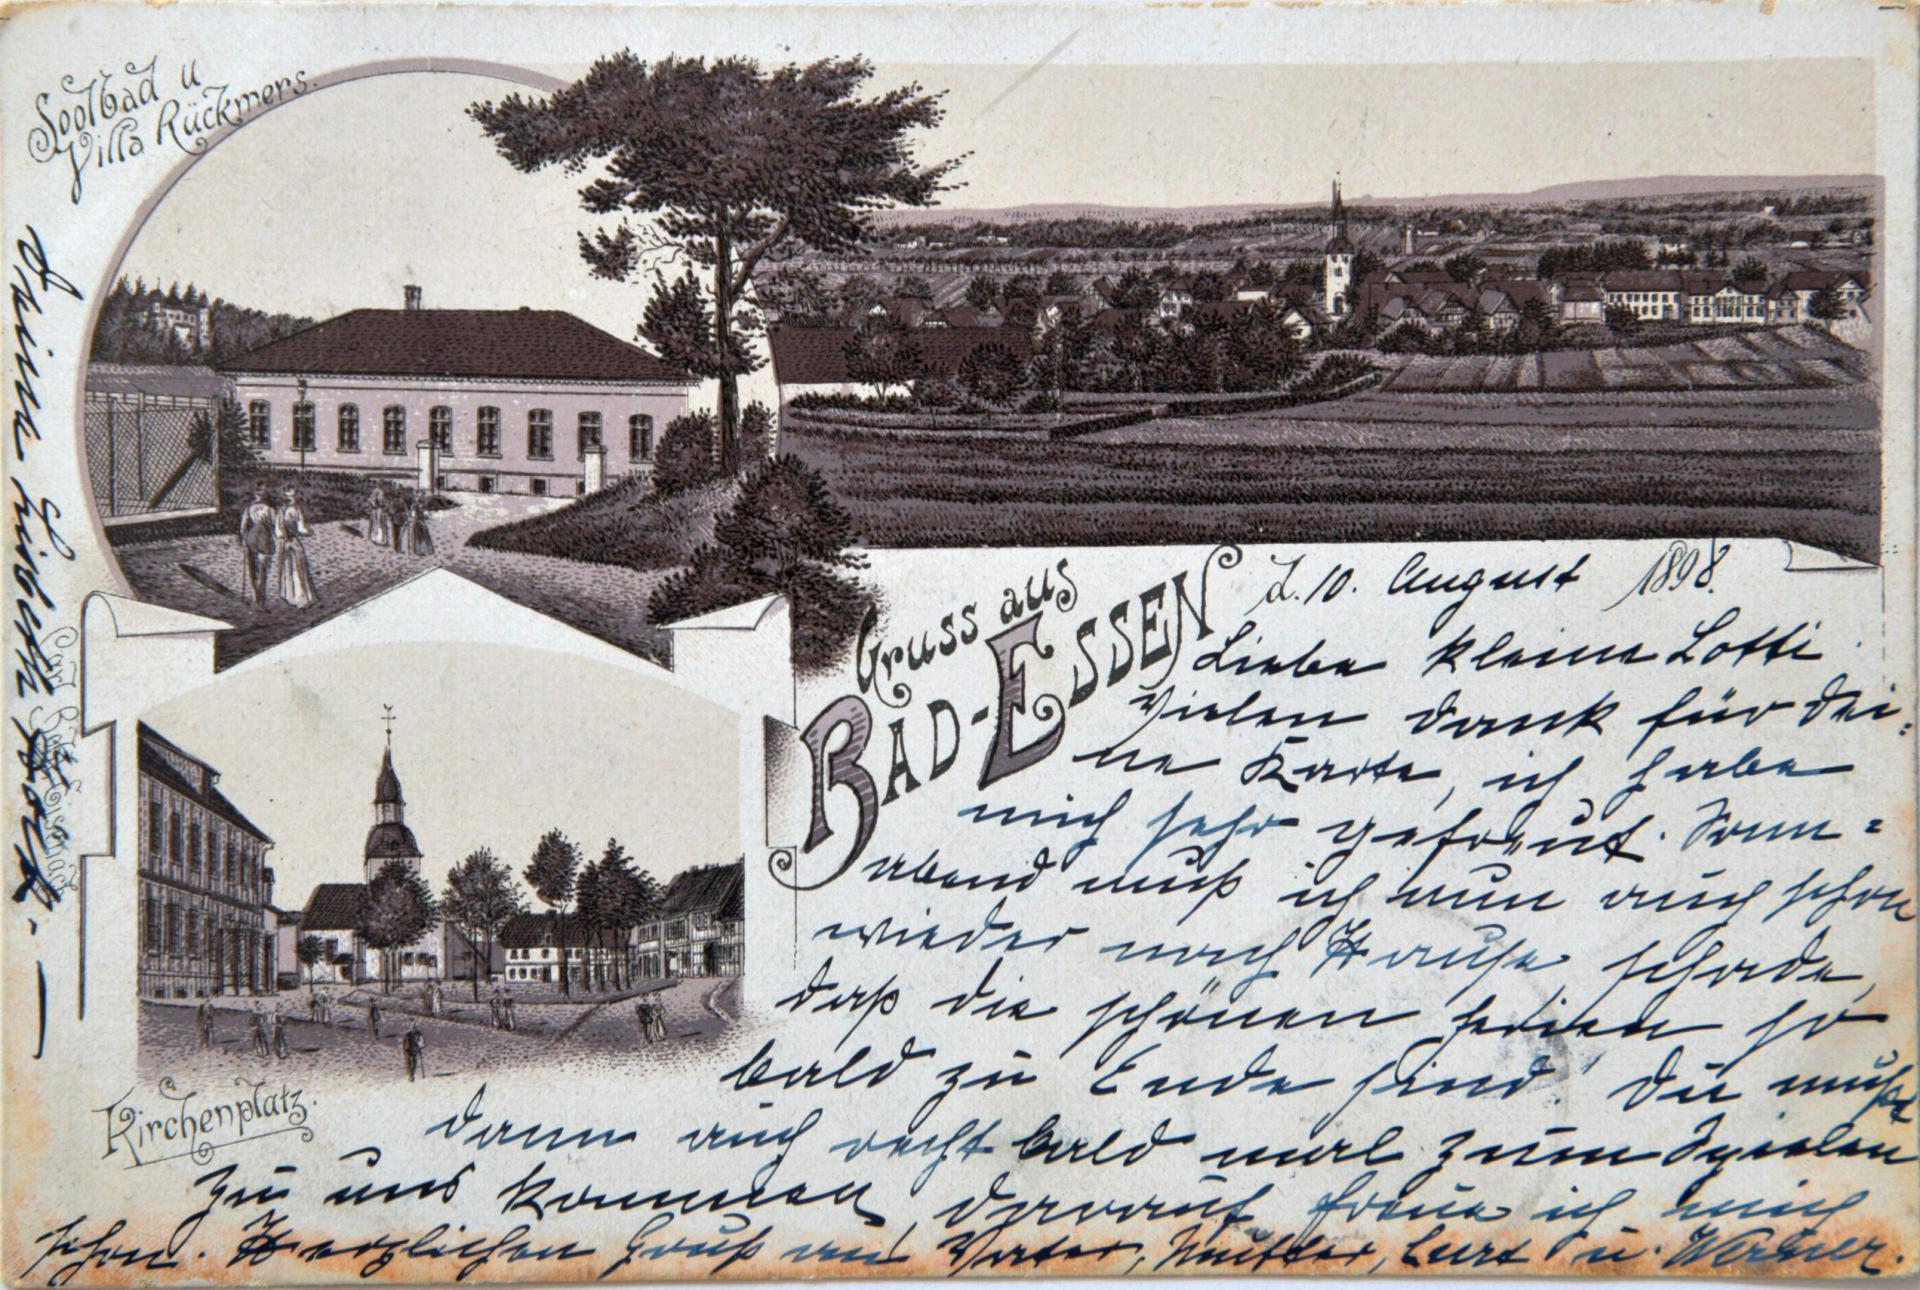 Soolbad u
Villa Rückmers.
Gruss aus
BAD-ESSEN
d. 10. August 1898.
Liebe kleine Lotti
Vielen Dank für Dei-
ne Karte, ich habe
mich sehr gefreut. Sonn-
abend muß ich nun auch schon
wieder nach Hause, schade,
daß die schönen Ferien so
bald zu Ende sind. Du mußt
dann auch recht bald mal zum Spielen
zu uns kommen, darauf freue ich mich
schon. Herzlichen Gruß an Vater, Mutter, Curt u. Werner.
Kirchenplatz.
Deine Lisbeth